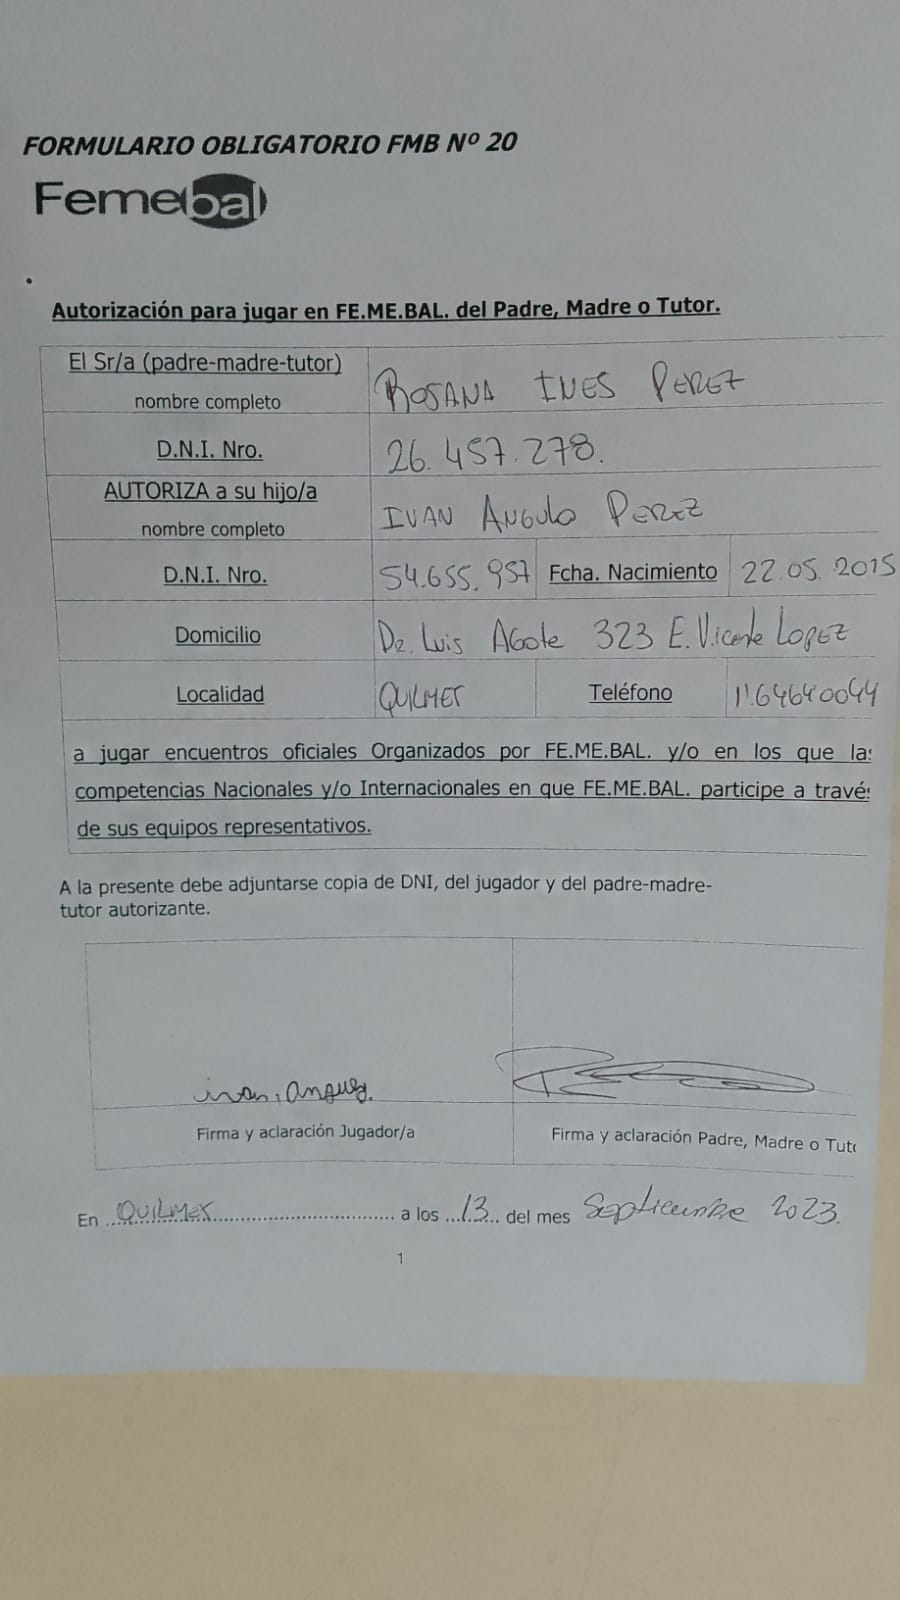 FORMULARIO OBLIGATORIO FMB Nº 20
Femebal
Autorización para jugar en FE.ME.BAL. del Padre, Madre o Tutor.
El Sr/a (padre-madre-tutor)
nombre completo
ROSANA INES PEREZ
D.N.I. Nro.
26.457.278.
AUTORIZA a su hijo/a
nombre completo
IVAN ANGULO PEREZ
D.N.I. Nro.
54.655.957
Fcha. Nacimiento
22.05.2015
Domicilio
Dr. Luis Agote 323 E. Vicente Lopez
Localidad
QUILMES
Teléfono
11.64640044
a jugar encuentros oficiales Organizados por FE.ME.BAL. y/o en los que las
competencias Nacionales y/o Internacionales en que FE.ME.BAL. participe a travé
de sus equipos representativos.
A la presente debe adjuntarse copia de DNI, del jugador y del padre-madre-
tutor autorizante.
Firma y aclaración Jugador/a
Firma y aclaración Padre, Madre o Tuto
En QUILMES a los 13 del mes Septiembre 2023.
1